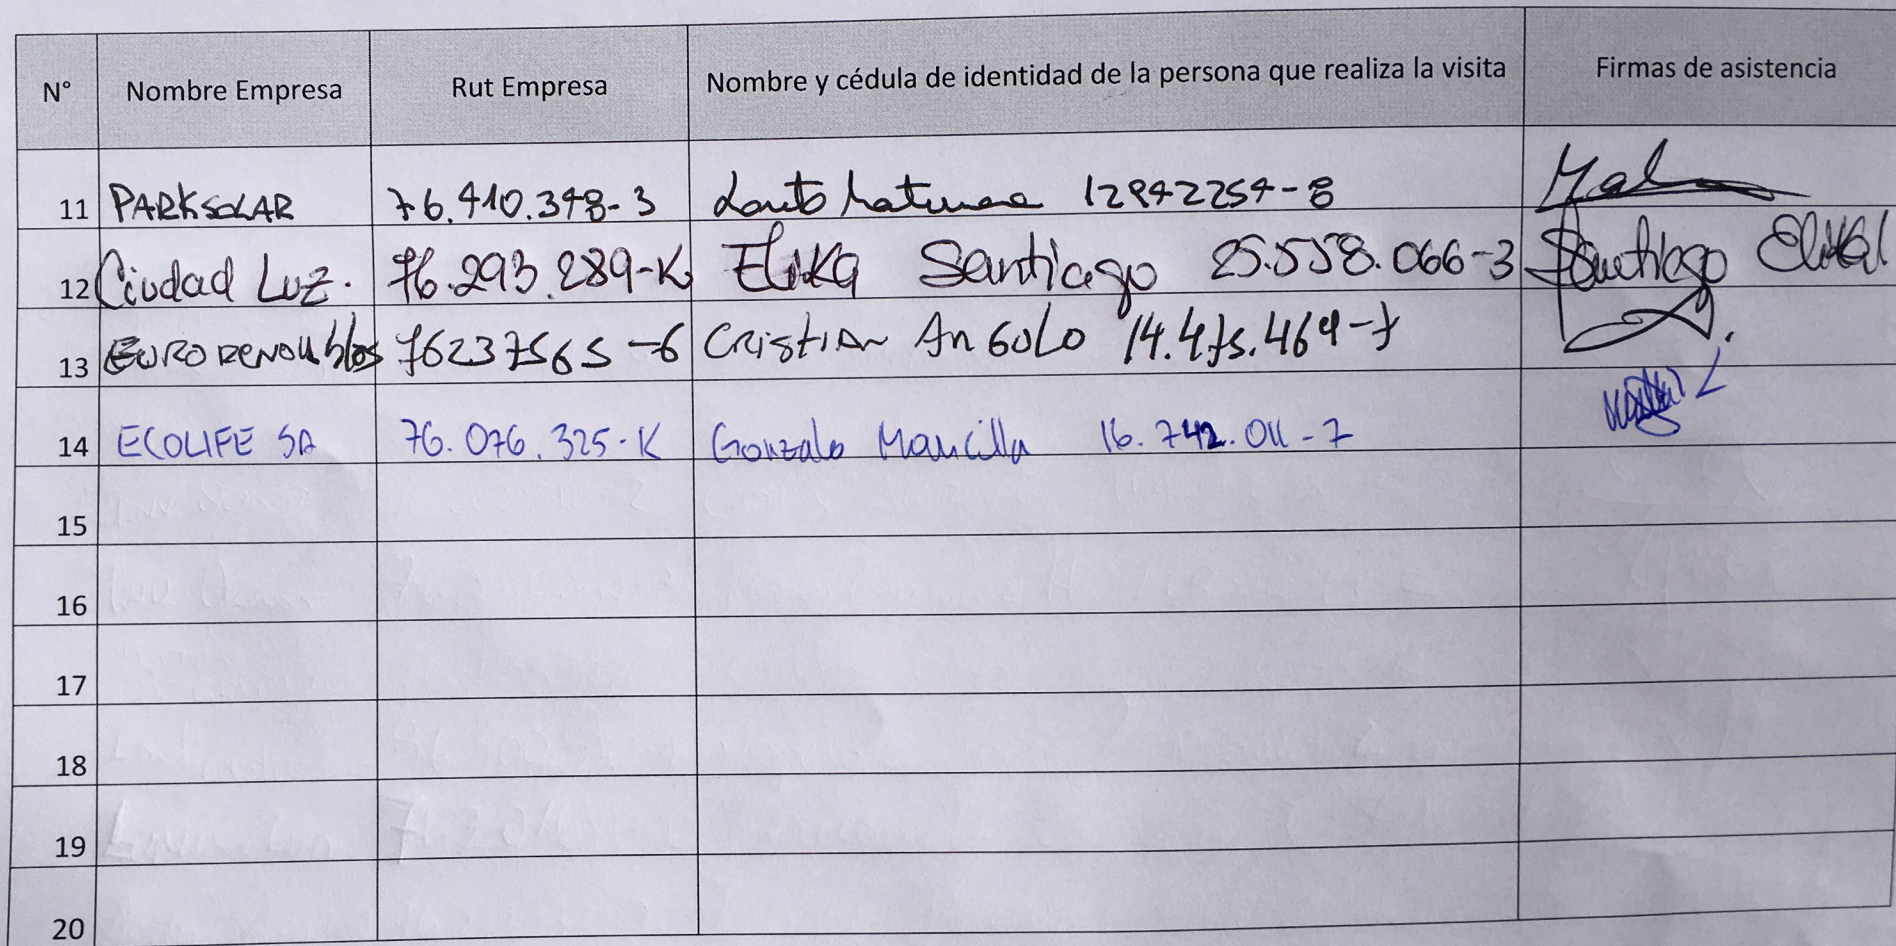 N° Nombre Empresa Rut Empresa Nombre y cédula de identidad de la persona que realiza la visita Firmas de asistencia
11 PARKSOLAR 76.410.348-3 12842254-8
12 Ciudad Luz. 76.293.289-K Elika Santiago 25.558.066-3 Santiago Elika
13 EURORENOVABLES 76237565-6 CRISTIAN ANGULO 14.475.469-7
14 ECOLIFE SA 76.076.325-K Gonzalo Mancilla 16.742.011-7
15
16
17
18
19
20